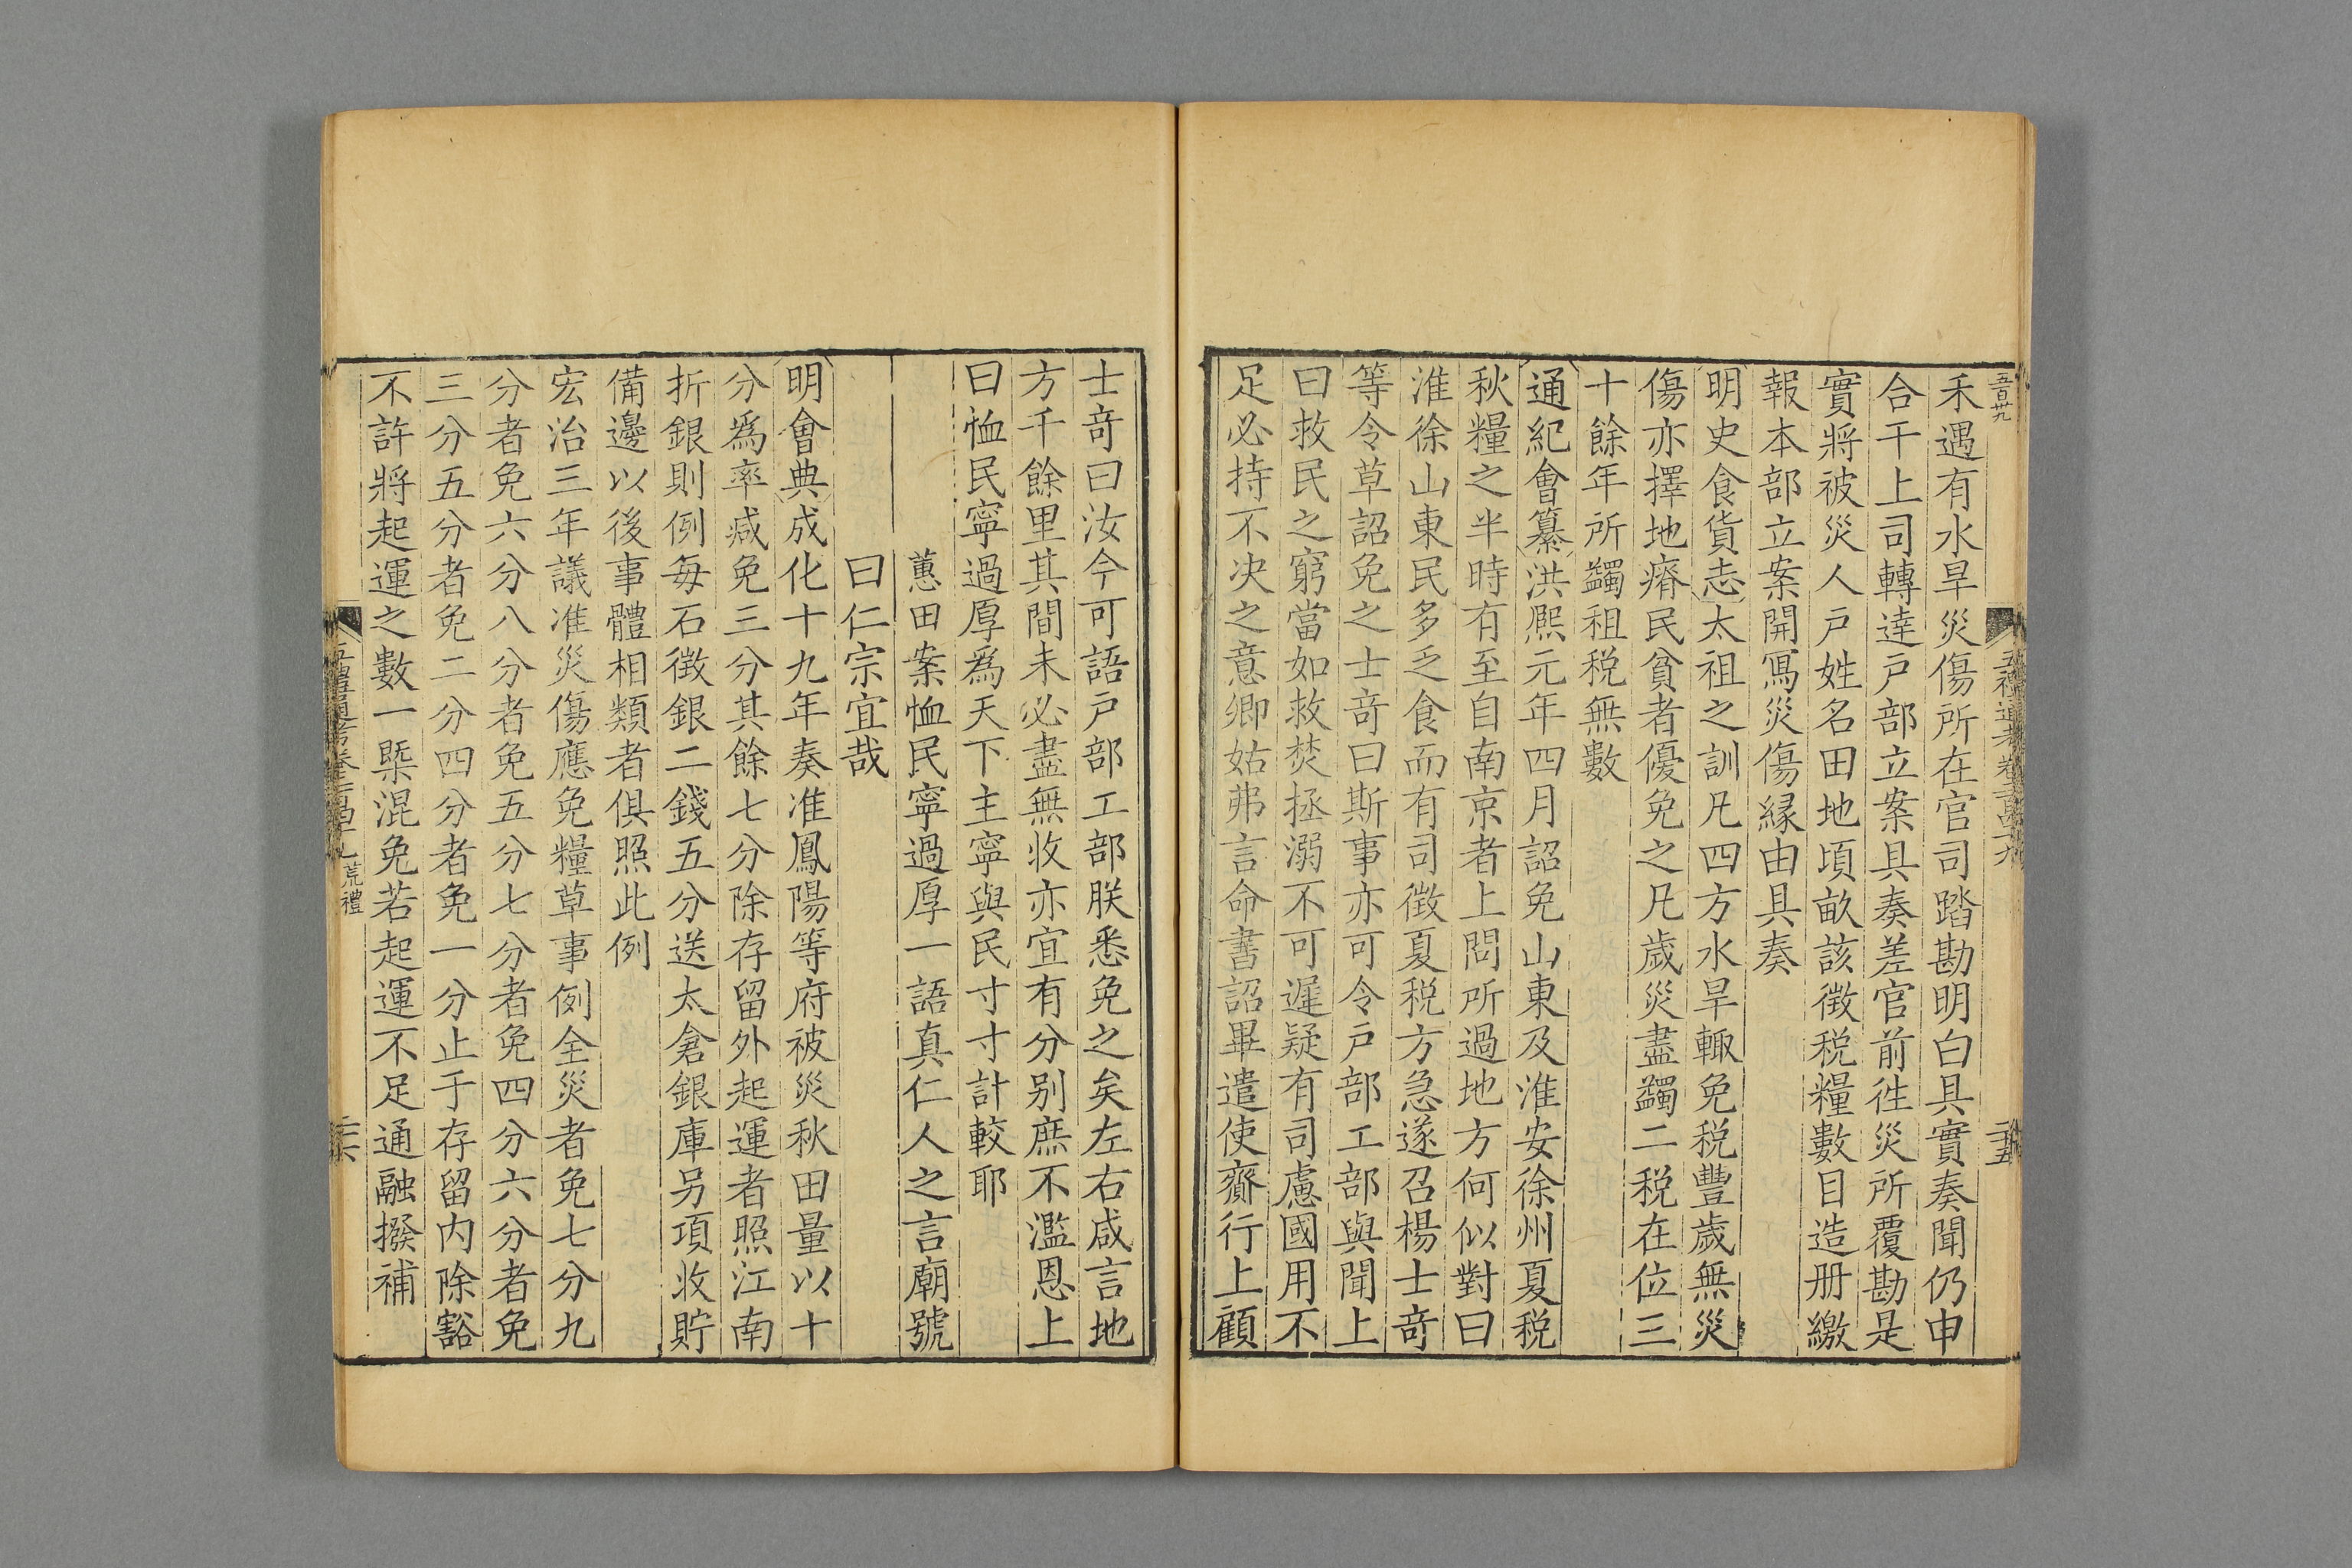 五百卅九
五禮通考卷二百四十九
二十五
禾遇有水旱災傷所在官司踏勘明白具實奏聞仍申
合干上司轉達戸部立案具奏差官前徃災所覆勘是
實將被災人戸姓名田地頃畝該徴税糧數目造册繳
報本部立案開寫災傷縁由具奏
明史食貨志太祖之訓凡四方水旱輙免税豐歲無災
傷亦擇地瘠民貧者優免之凡歲災盡蠲二税在位三
十餘年所蠲租税無數
通紀會纂洪熈元年四月詔免山東及淮安徐州夏税
秋糧之半時有至自南京者上問所過地方何似對曰
淮徐山東民多乏食而有司徴夏税方急遂召楊士竒
等令草詔免之士竒曰斯事亦可令戸部工部與聞上
曰救民之窮當如救焚拯溺不可遲疑有司慮國用不
足必持不决之意卿姑弗言命書詔畢遣使齎行上顧
士竒曰汝今可語戸部工部朕悉免之矣左右咸言地
方千餘里其間未必盡無收亦宜有分别庶不濫恩上
曰恤民寧過厚為天下主寧與民寸寸計較耶
蕙田案恤民寧過厚一語真仁人之言廟號
曰仁宗宜哉
明會典成化十九年奏准鳳陽等府被災秋田量以十
分爲率减免三分其餘七分除存留外起運者照江南
折銀則例每石徴銀二錢五分送太倉銀庫另項收貯
備邊以後事體相類者俱照此例
宏治三年議准災傷應免糧草事例全災者免七分九
分者免六分八分者免五分七分者免四分六分者免
三分五分者免二分四分者免一分止于存留内除豁
不許將起運之數一槩混免若起運不足通融撥補
五禮通考卷二百四十九 荒禮
二十六